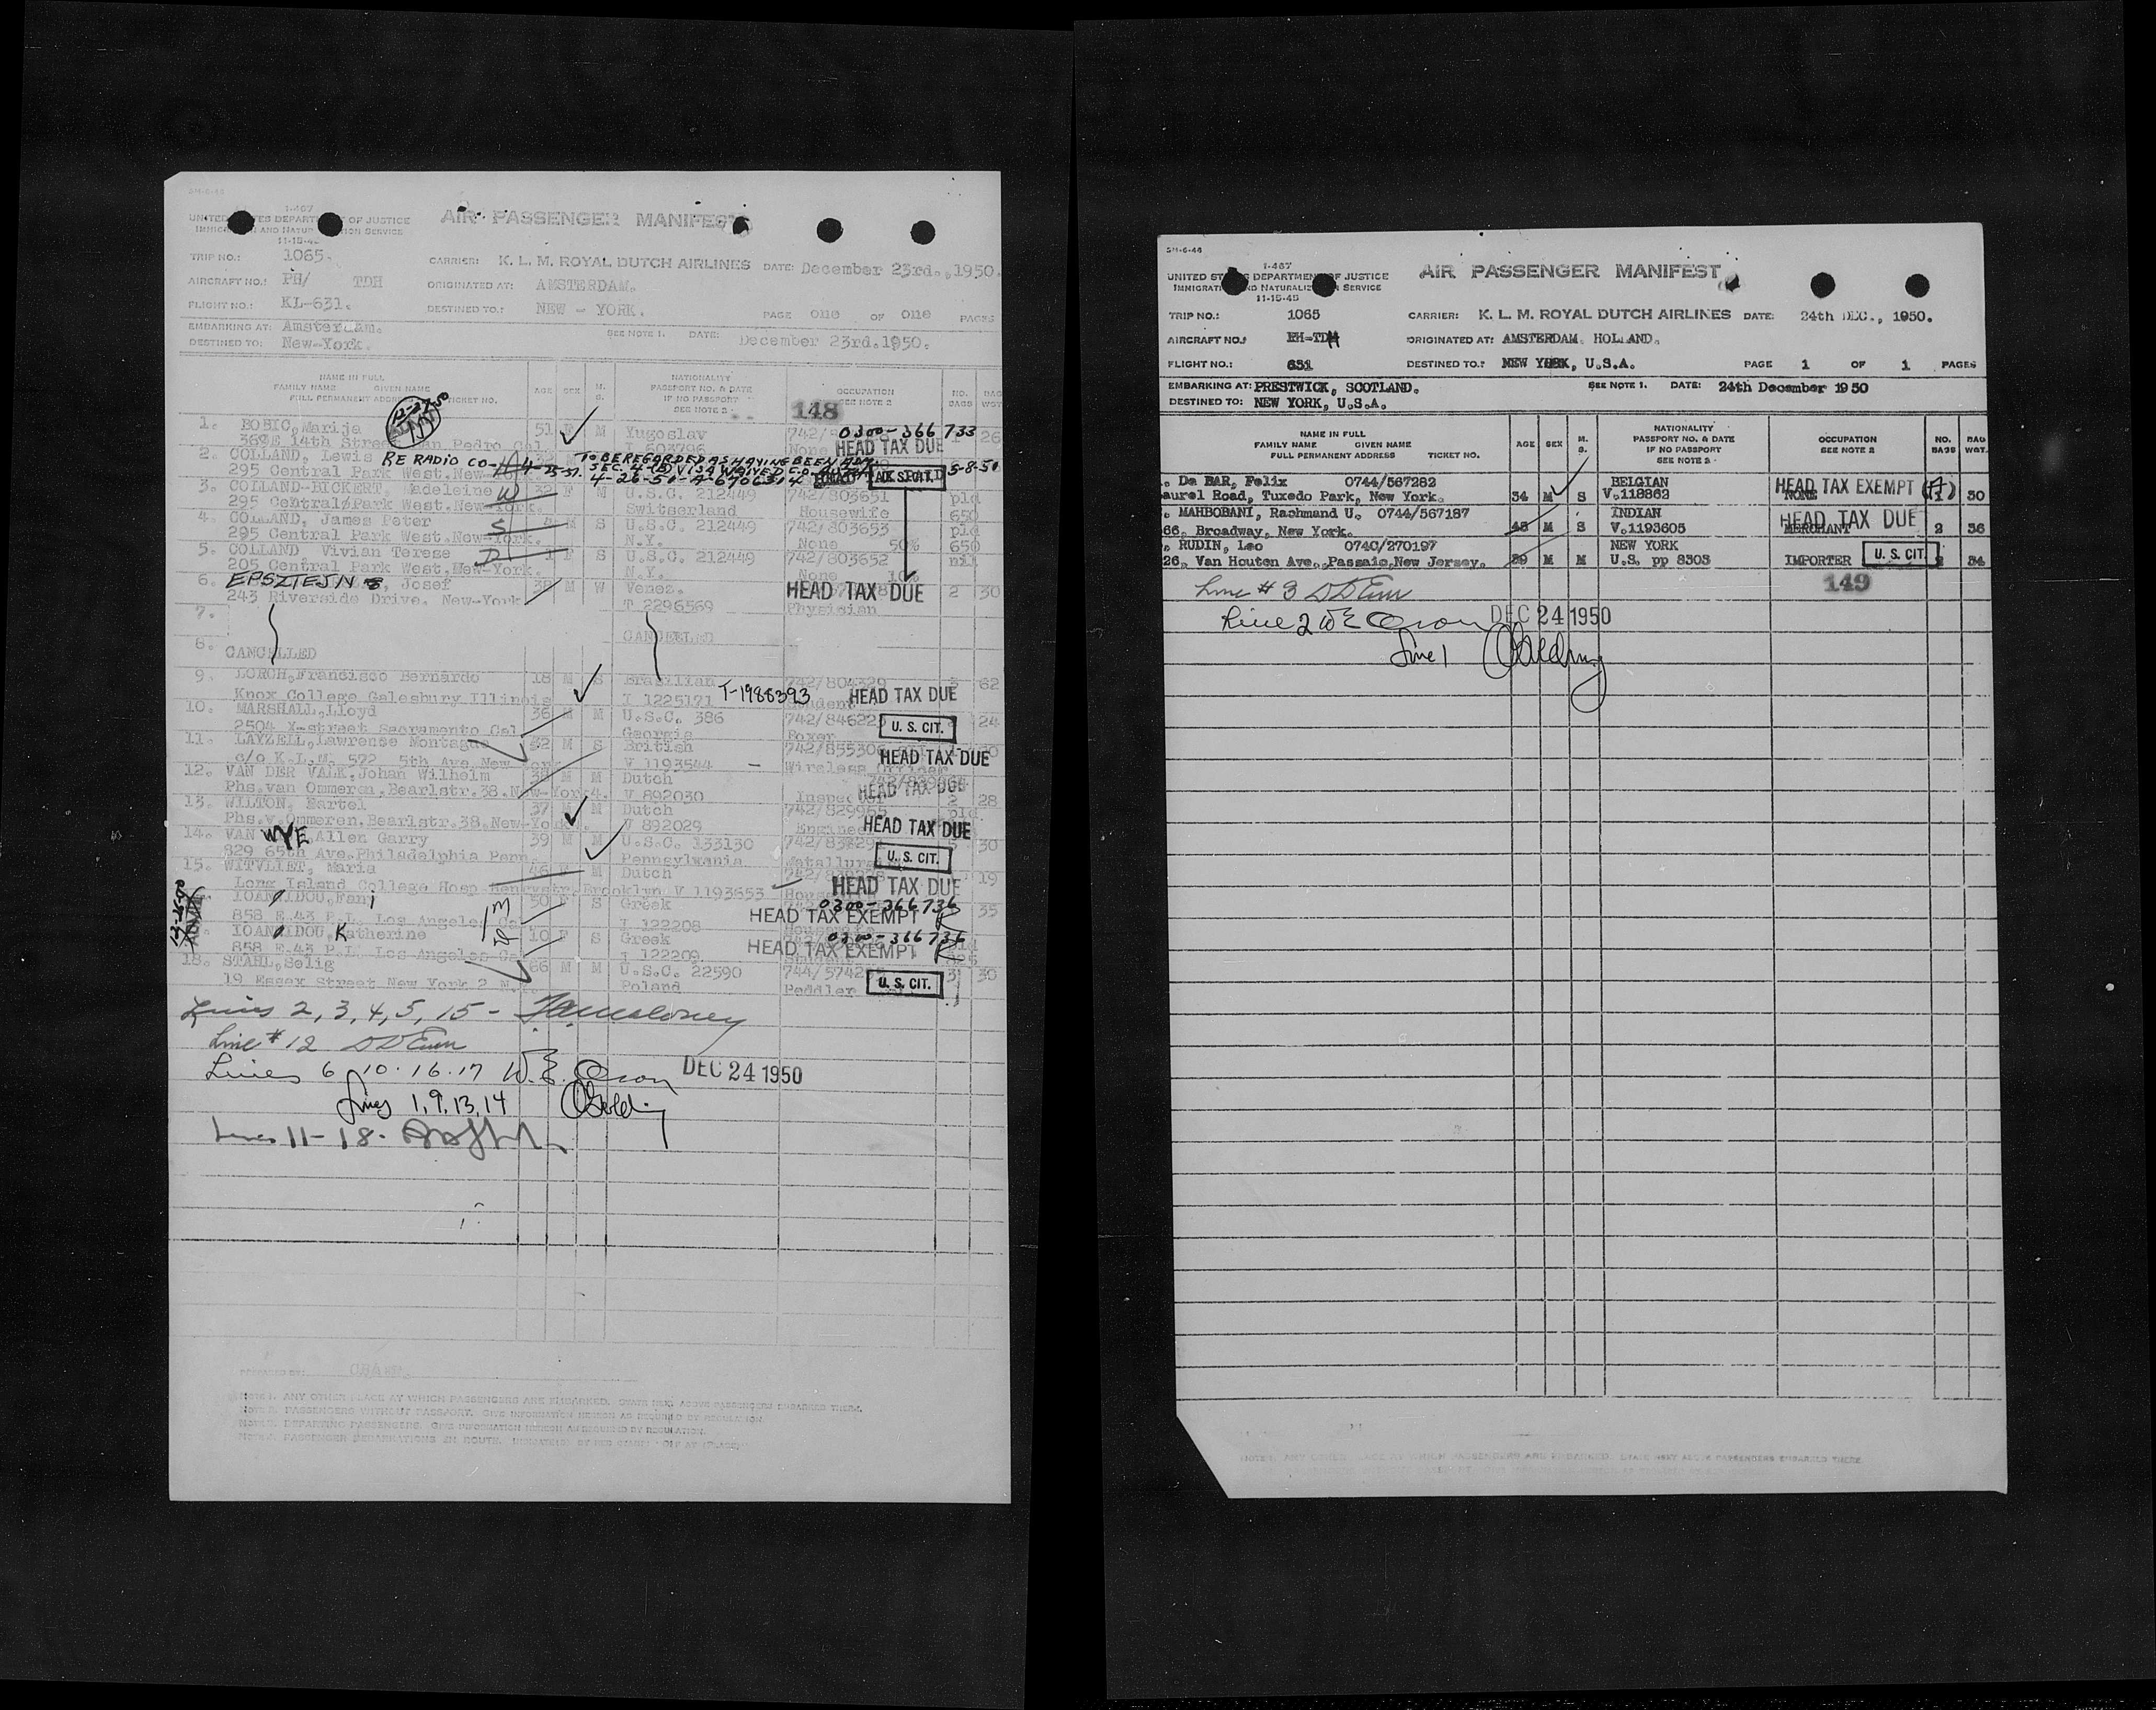 SH-6-44
I-467
UNITED STATES DEPARTMENT OF JUSTICE
IMMIGRATION AND NATURALIZATION SERVICE
11-15-4
AIR PASSENGER MANIFEST
TRIP NO.: 1065.
CARRIER: K. L. M. ROYAL DUTCH AIRLINES DATE: December 23rd.,1950.
AIRCRAFT NO.: PH/ TDH
ORIGINATED AT: AMSTERDAM.
FLIGHT NO.: KL-631.
DESTINED TO: NEW - YORK. PAGE one OF one PAGES
EMBARKING AT: Amsterdam. SEE NOTE 1. DATE: December 23rd.1950.
DESTINED TO: New-York.
NAME IN FULL
FAMILY NAME GIVEN NAME
FULL PERMANENT ADDRESS TICKET NO.
AGE SEX M. S.
NATIONALITY
PASSPORT NO. & DATE
IF NO PASSPORT
SEE NOTE 2
OCCUPATION
SEE NOTE 2
NO. BAGS BAG WGT.
148
12-27-50
1. BOBIC, Marija 51 F M Yugoslav 742/ 0300-366733 26
14th Street San Pedro Cal I 603796 None HEAD TAX DUE
2. COLLAND, Lewis RE RADIO CO- TO BE REGARDED AS HAVING BEEN ADM.
295 Central Park West.New-York. SEC. 4-(B) VISA WAIVED C.O. 5-8-51
4-26-51-A-6706314
3. COLLAND-BICKERT, Madeleine W 32 F M U.S.C. 212449 742/803651 pld
295 Central/Park West.New-York. Switzerland Housewife 650
4. COLLAND, James Peter S M S U.S.C. 212449 742/803653 pld
295 Central Park West.New-York. N.Y. None 50% 650
5. COLLAND Vivian Terese D F S U.S.C. 212449 742/803652 nil
205 Central Park West.New-York. N.Y. None
6. EPSZTEJN, Josef M W Venez. HEAD TAX DUE 2 30
243 Riverside Drive. New-York T 2296569 Physician
7.
CANCELLED
8.
CANCELLED
9. LORCH,Francisco Bernardo 18 M S Brazilian 742/804329 62
Knox College Galesbury Illinois I 1225171 T-1988393 Student HEAD TAX DUE
10. MARSHALL,Lloyd 36 M M U.S.C. 386 742/84622 U. S. CIT. 24
2504 X-street Sacramento Cal Georgia Boxer
11. LAYZELL,Lawrense Montague 52 M S British 742/855306
c/o K.L.M. 572 5th Ave New York V 1193544 Wireless Officer HEAD TAX DUE
12. VAN DER VALK,Johan Wilhelm 38 M M Dutch
Phs.van Ommeren.Bearlstr.38.New-York4. V 892030 Inspector HEAD TAX DUE 2 28
13. WILTON, Bartel 37 M M Dutch 742/829965 pld
Phs.v.Ommeren.Bearlstr.38.New-York. V 892029 Engineer HEAD TAX DUE
14. VAN WYE, Allen Garry 39 M M U.S.C. 133130 30
829 65th Ave.Philadelphia Penn. Pennsylvania U. S. CIT.
15. WITVLIET, Maria 46 F M Dutch 19
Long Island College Hosp Henrystr. Brooklyn V 1193653 HEAD TAX DUE
IOANNIDOU,Fani 50 F S Greek 0300-366736 35
858 E.43 P.L. Los Angeles Cal I 122208 HEAD TAX EXEMPT
IOANNIDOU, Katherine 10 F S Greek 0300-366736
858 E.43 P.L. Los-Angeles Cal I 122209 Student HEAD TAX EXEMPT
18. STAHL,Selig 66 M M U.S.C. 22590 744/5742 3 30
19 Essex Street New York 2 N.Y. Poland Peddler U. S. CIT.
Lines 2, 3, 4, 5, 15 -
Line # 12
Lines 6 10.16.17 W.E. DEC 24 1950
Lines 1,9,13,14
Lines 11-18.
PREPARED BY:
NOTE 1. ANY OTHER PLACE AT WHICH PASSENGERS ARE EMBARKED. STATE HERE ABOVE PASSENGERS EMBARKED THERE.
NOTE 2. PASSENGERS WITHOUT PASSPORT. GIVE INFORMATION HEREON AS REQUIRED BY REGULATION
NOTE 3. DEPARTING PASSENGERS. GIVE INFORMATION HEREON AS REQUIRED BY REGULATION.
SH-6-44
I-467
UNITED STATES DEPARTMENT OF JUSTICE
IMMIGRATION AND NATURALIZATION SERVICE
11-15-45
AIR PASSENGER MANIFEST
TRIP NO.: 1065 CARRIER: K. L. M. ROYAL DUTCH AIRLINES DATE: 24th DEC., 1950.
AIRCRAFT NO.: PH-TDH ORIGINATED AT: AMSTERDAM. HOLLAND.
FLIGHT NO.: 631 DESTINED TO: NEW YORK, U.S.A. PAGE 1 OF 1 PAGES
EMBARKING AT: PRESTWICK, SCOTLAND. SEE NOTE 1. DATE: 24th December 1950
DESTINED TO: NEW YORK, U.S.A.
NAME IN FULL
FAMILY NAME GIVEN NAME
FULL PERMANENT ADDRESS TICKET NO.
AGE SEX M. S.
NATIONALITY
PASSPORT NO. & DATE
IF NO PASSPORT
SEE NOTE 2
OCCUPATION
SEE NOTE 2
NO. BAGS BAG WGT.
. De BAR, Felix 0744/567282 BELGIAN HEAD TAX EXEMPT (A)
aurel Road, Tuxedo Park, New York. 34 M S V.118862 NONE 1 30
. MAHBOBANI, Rachmand U. 0744/567187 INDIAN HEAD TAX DUE
66, Broadway, New York. 48 M S V.1193605 MERCHANT 2 36
, RUDIN, Leo 0740/270197 NEW YORK
26, Van Houten Ave., Passaic,New Jersey. 39 M M U.S. pp 8303 IMPORTER U. S. CIT. 34
Line # 3
149
Line 2 WE DEC 24 1950
Line 1
NOTE 1. ANY OTHER PLACE AT WHICH PASSENGERS ARE EMBARKED. STATE HERE ABOVE PASSENGERS EMBARKED THERE.